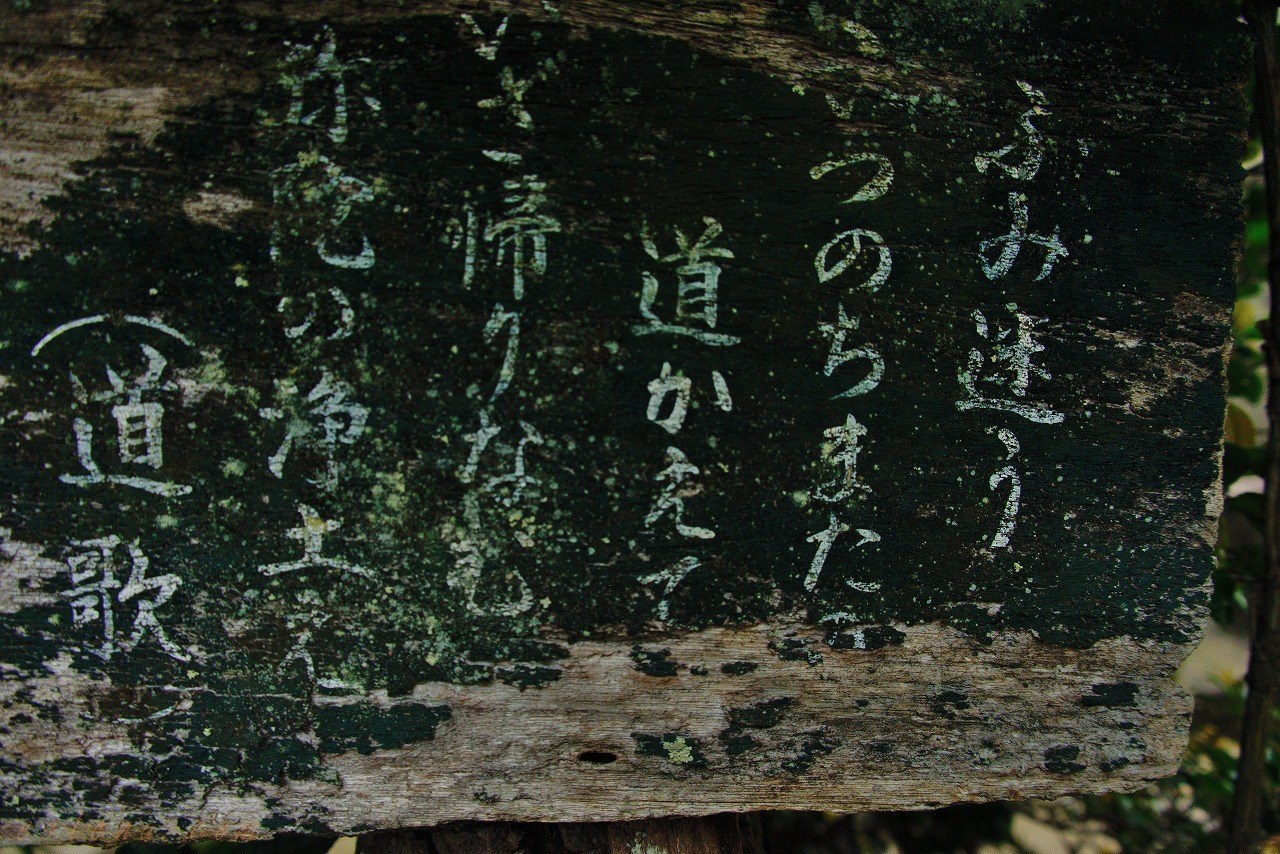 ふみ迷う
つのちまたの
道かえて
いそ帰りなむ
の浄土へ
(道歌)